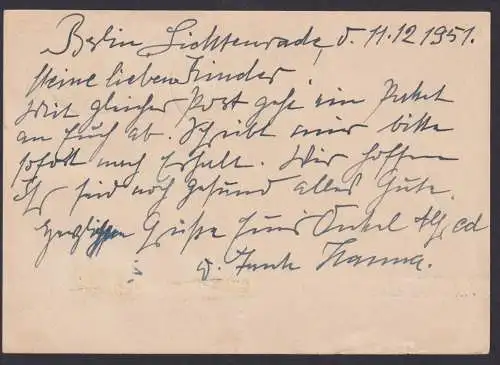 Berlin Lichtenrade, d. 11.12.1951.
Meine lieben Kinder
Mit gleicher Post geht ein Paket
an Euch ab. Schreibt mir bitte
sofort nach Erhalt. Wir hoffen
Ihr seid noch gesund alles Gute.
Herzlichen Grüße Euer Onkel Alfred
u. Tante Hanna.